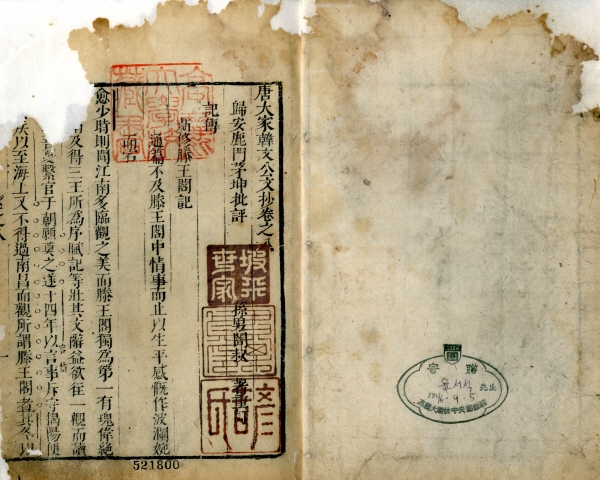 唐大家韓文公文抄卷之八
歸安鹿門茅坤批評
孫男闇叔
著重訂
記傳
新修滕王閣記
通篇不及滕王閣中情事而止以生平感慨作波瀾婉
而宕
愈少時則聞江南多臨觀之美而滕王閣獨為第一有瑰偉絕
及得三王所為序賦記等壯其文辭益欲往一觀而讀
繫官于朝願莫之遂十四年以言事斥守揭陽便
以至海上又不得過南昌而觀所謂滕王閣者其冬以
坡平
世家
寄贈
先生
1996. 9. 5
高麗大學校中央圖書館
521800